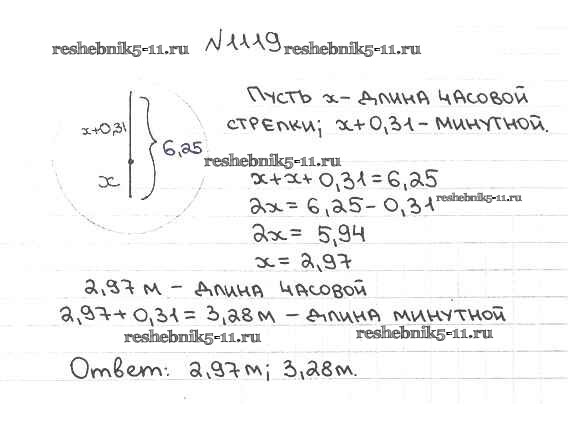 №1119
reshebnik5-11.ru reshebnik5-11.ru
Пусть х - длина часовой
х+0,31
стрелки; х+0,31 - минутной.
6,25
reshebnik5-11.ru
х
х+х+0,31=6,25
2х=6,25-0,31
reshebnik5-11.ru
2х= 5,94
х=2,97
2,97 м - длина часовой
2,97+0,31=3,28м - длина минутной
reshebnik5-11.ru reshebnik5-11.ru
Ответ: 2,97м; 3,28м.